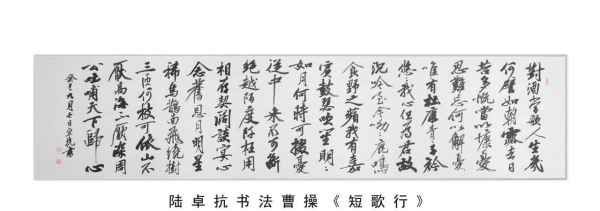 對酒當歌人生幾
何譬如朝露去日
苦多慨當以慷憂
思難忘何以解憂
唯有杜康青々子衿
悠々我心但為君故
沉吟至今呦々鹿鳴
食野之蘋我有嘉
賓鼓瑟吹笙明々
如月何時可掇憂
從中來不可斷
越陌度阡枉用
相存契闊談宴心
念舊恩月明星
稀烏鵲南飛繞樹
三匝何枝可依山不
厭高海不厭深周
公吐哺天下歸心
九月七日卓抗書
陆卓抗书法曹操《短歌行》